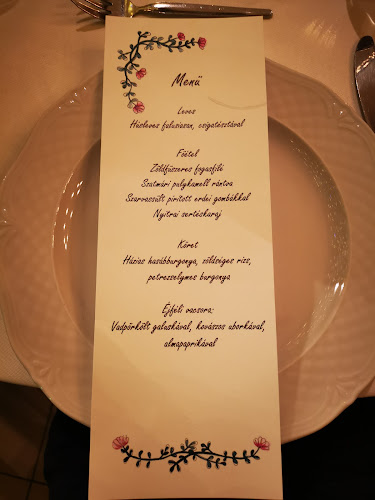 Menü
Leves
Húsleves falusiasan, csigatésztával
Főétel
Zöldfűszeres fogasfilé
Szatmári pulykamell rántva
Szarvassült pirított erdei gombákkal
Nyitrai sertéskaraj
Köret
Házias hasábburgonya, zöldséges rizs,
petrezselymes burgonya
Éjféli vacsora:
Vadpörkölt galuskával, kovászos uborkával,
almapaprikával